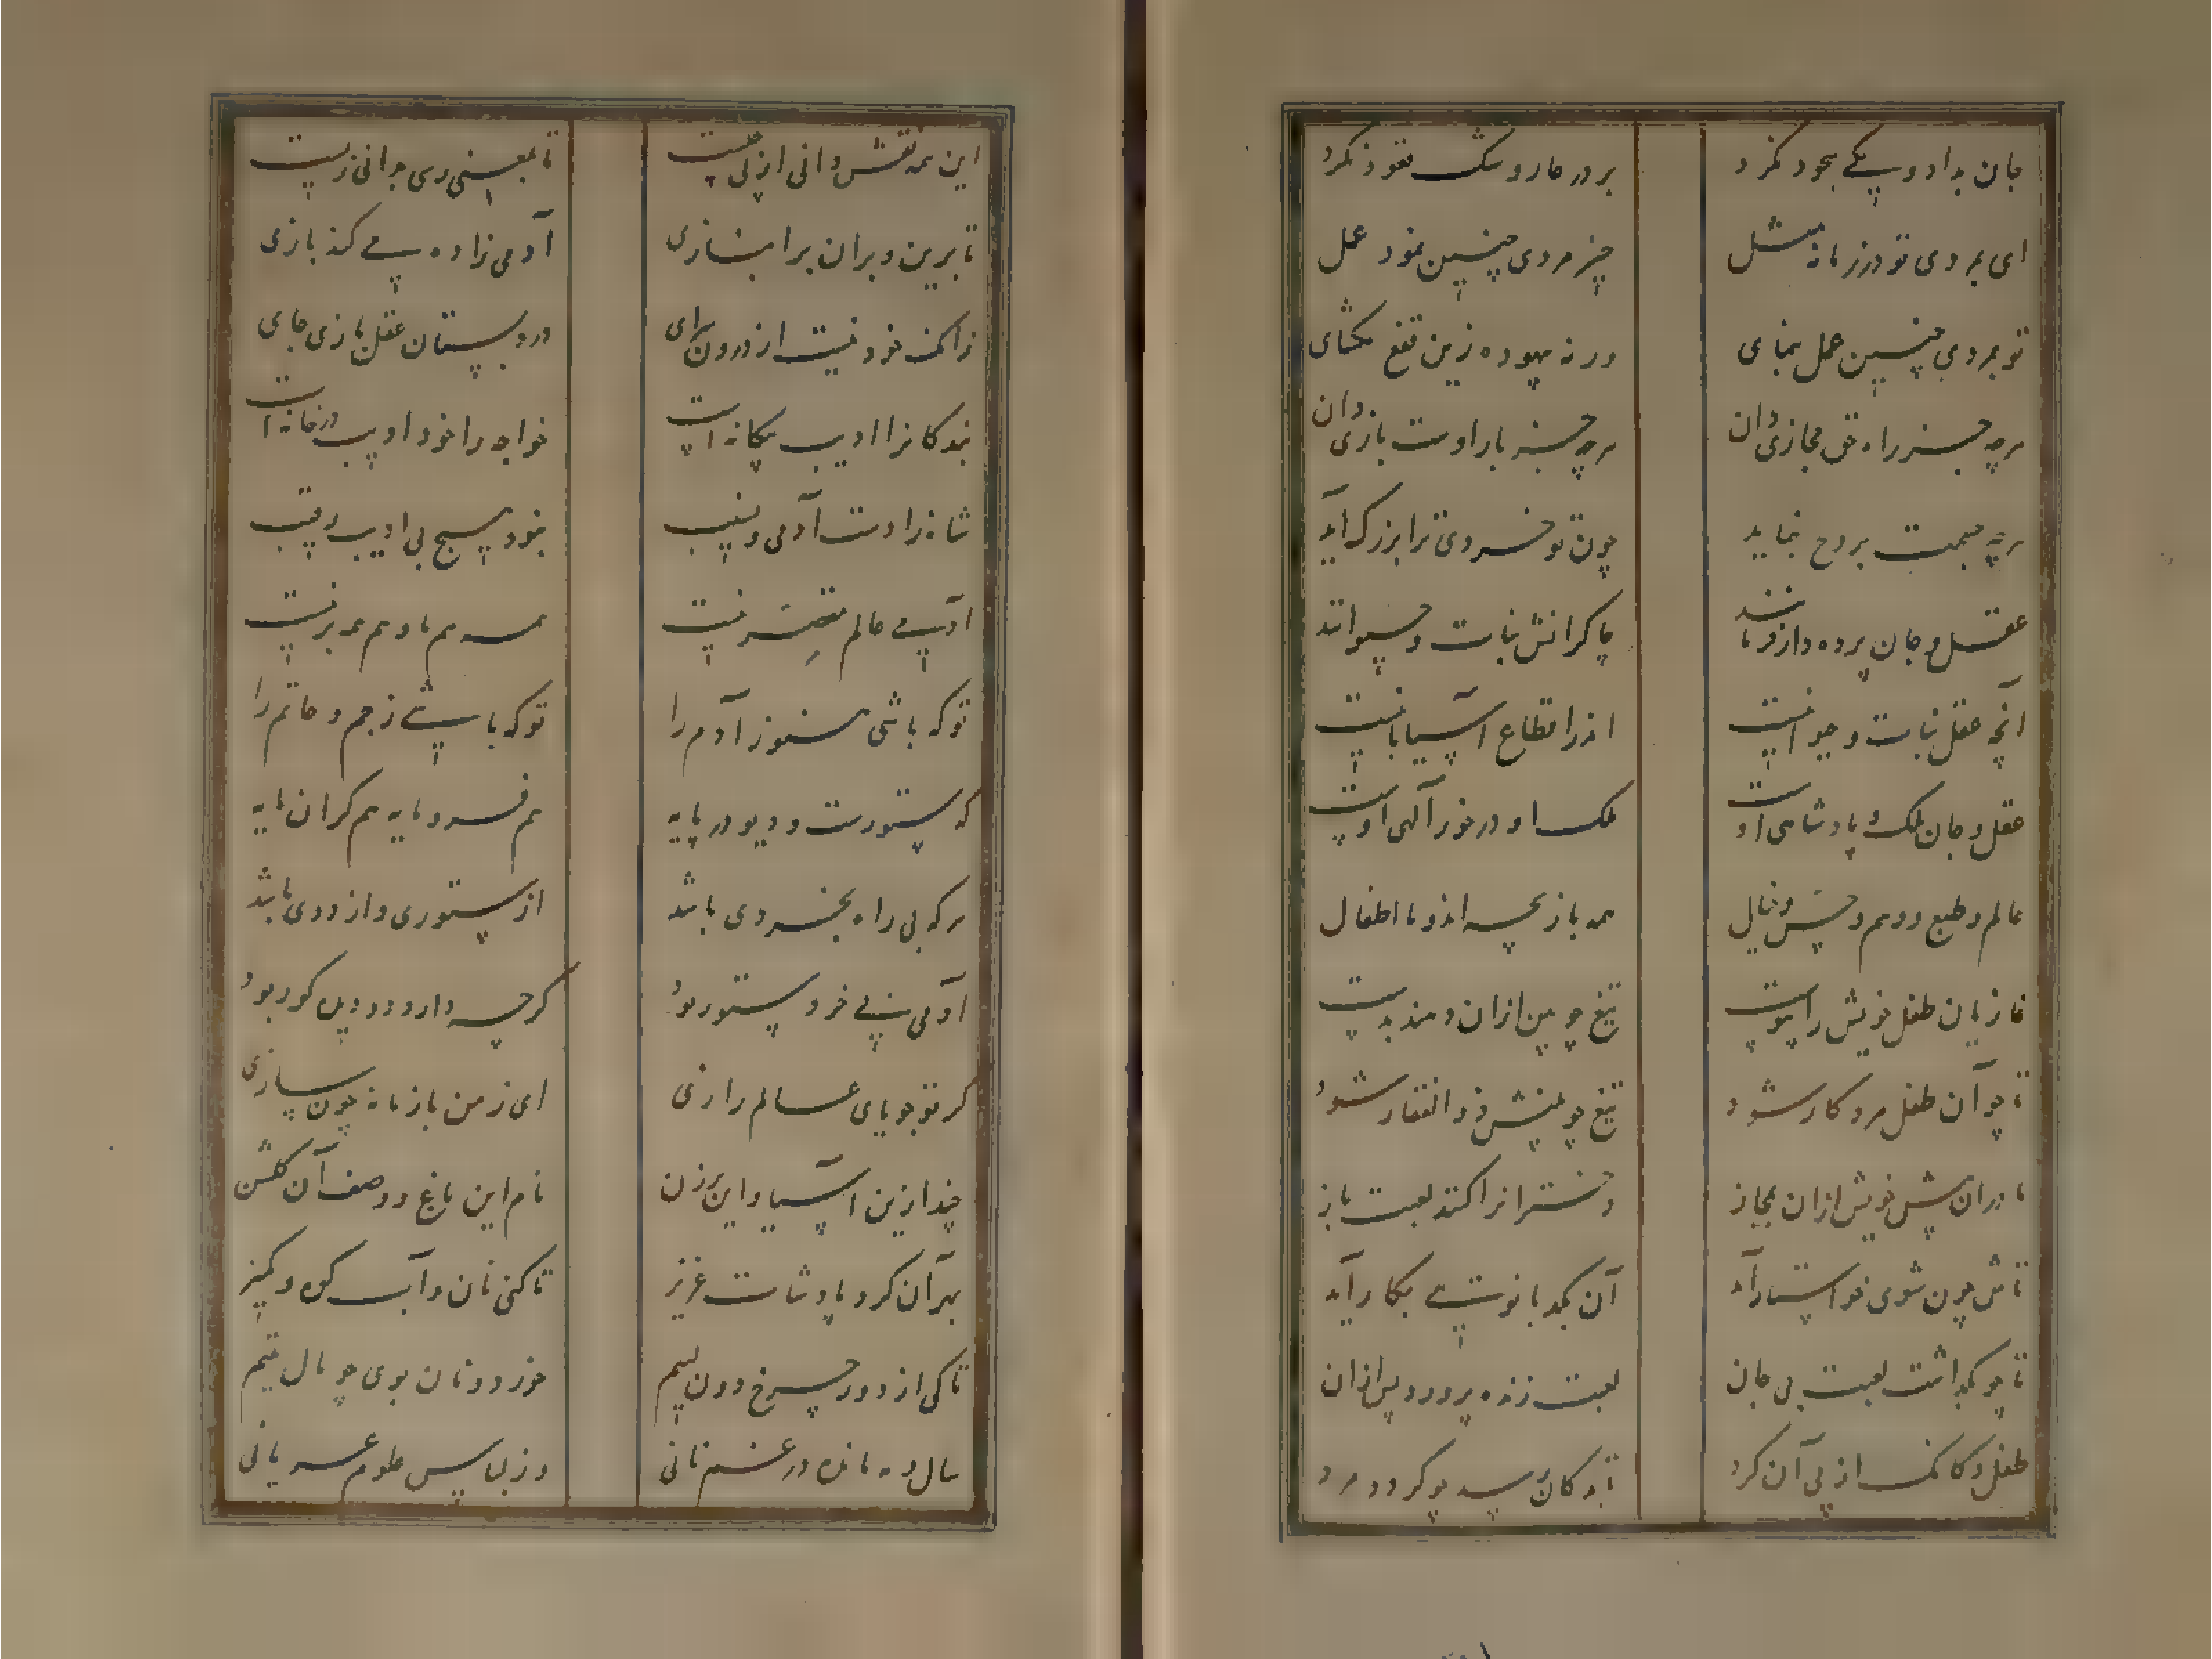 جان بداد و یکی سجود نکرد
بر در مار و سنگ نقود نکرد
ای بمردی تو در زمانه مثل
چیز مردی چنین نمود عمل
تو بمردی چنین عمل بنمای
ورنه بیهوده زین قفع مگشای
هرچه جز راه حق مجازی دان
هرچه جز یار اوست بازی دان
هرچه جسمت بروح بنماید
چون تو خردی ترا بزرگ آید
عقل و جان پرده دار فرمانند
چاکرانش نبات و حیوانند
آنچه عقل نبات و حیوانیست
اندر اقطاع آسیابانیست
عقل و جان ملک و پادشاهی اوست
ملک او در خور آلهی اوست
عالم و طبع و وهم و حس و خیال
همه بازیچه اند و ما اطفال
غازیان طفل خویش را پیوست
تیغ چوبین ازان دهند بدست
تا چو آن طفل مرد کار شود
تیغ چوبینش ذوالفقار شود
مادران پیش خویش ازان بمجاز
دختران را کنند لعبت باز
تاش چون شوی خواستار آید
آن کدبانوئی بکار آید
تا چو بگذاشت لعبت بی جان
لعبت زنده پرورد پس ازان
طفل وکانک از پی آن کرد
تا بدکان رسد چو گردد مرد
این همه نقش دانی از پی چیست
تا بمعنی رسی چو دانی زیست
تا برین و بران برافرازی
آدمی زاده پی کند بازی
زانکه خود نیست از درون سرای
در دبستان عقل بازی جای
بندگانرا ادیب بیگانه است
خواجه را خود ادیب در خانه است
شاه زادست آدمی و نسیب
نبود هیچ بی ادیب رقیب
آدمی عالم مختصر نیست
همه هم مادهم همه بر نیست
تو که باشی هنوز آدم را
تو که باشی ز جم و خاتم را
که ستورست و دیو در پایه
هم فرومایه هم گران مایه
هرکه بی راه بخردی باشد
از ستوری و از ددی باشد
آدمی بی خرد ستور بود
گرچه دارد دو دیده کور بود
گر تو جویای عالم رازی
ای ز من باز مانه چون سازی
چند ازین آسیا و این برزن
نام این باغ و وصف آن گلشن
بهر آن کرد پادشات عزیز
تا کنی نان و آب گوه و کمیز
تا کی از دور چرخ دون لئیم
خورد دونان بوی چو مال یتیم
سال و مه مانده در غم نانی
وز لباس علوم عریانی